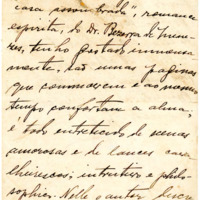 casa assombrada", romance
espirita, do dr. Bezerra de Mene-
zes, tenho gostado immensa-
mente, são umas paginas
que commovem e ao mesmo
tempo confortam a alma,
é todo entretecido de scenas
amorosas e de lances cava-
lheirescos; instructivo e philo-
sophico. Nelle o autor